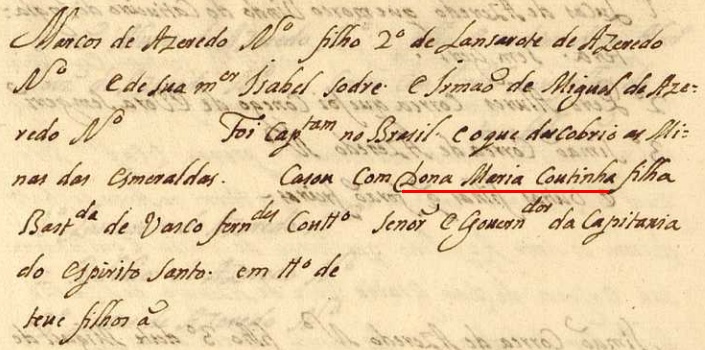 Marcos de Azeredo Nº filho 2º de Lansarote de Azeredo
Nº e de sua mer Isabel sodre. e Irmaõ de Miguel de Aze=
redo Nº Foi Captam no Brasil. e o que descobrio as Mi=
nas das esmeraldas. Casou com Dona Maria Coutinha filha
Bastda de Vascoферndes Coutto Senor e Governdor da Capitania
do espirito Santo. em tto de
teve filhos a